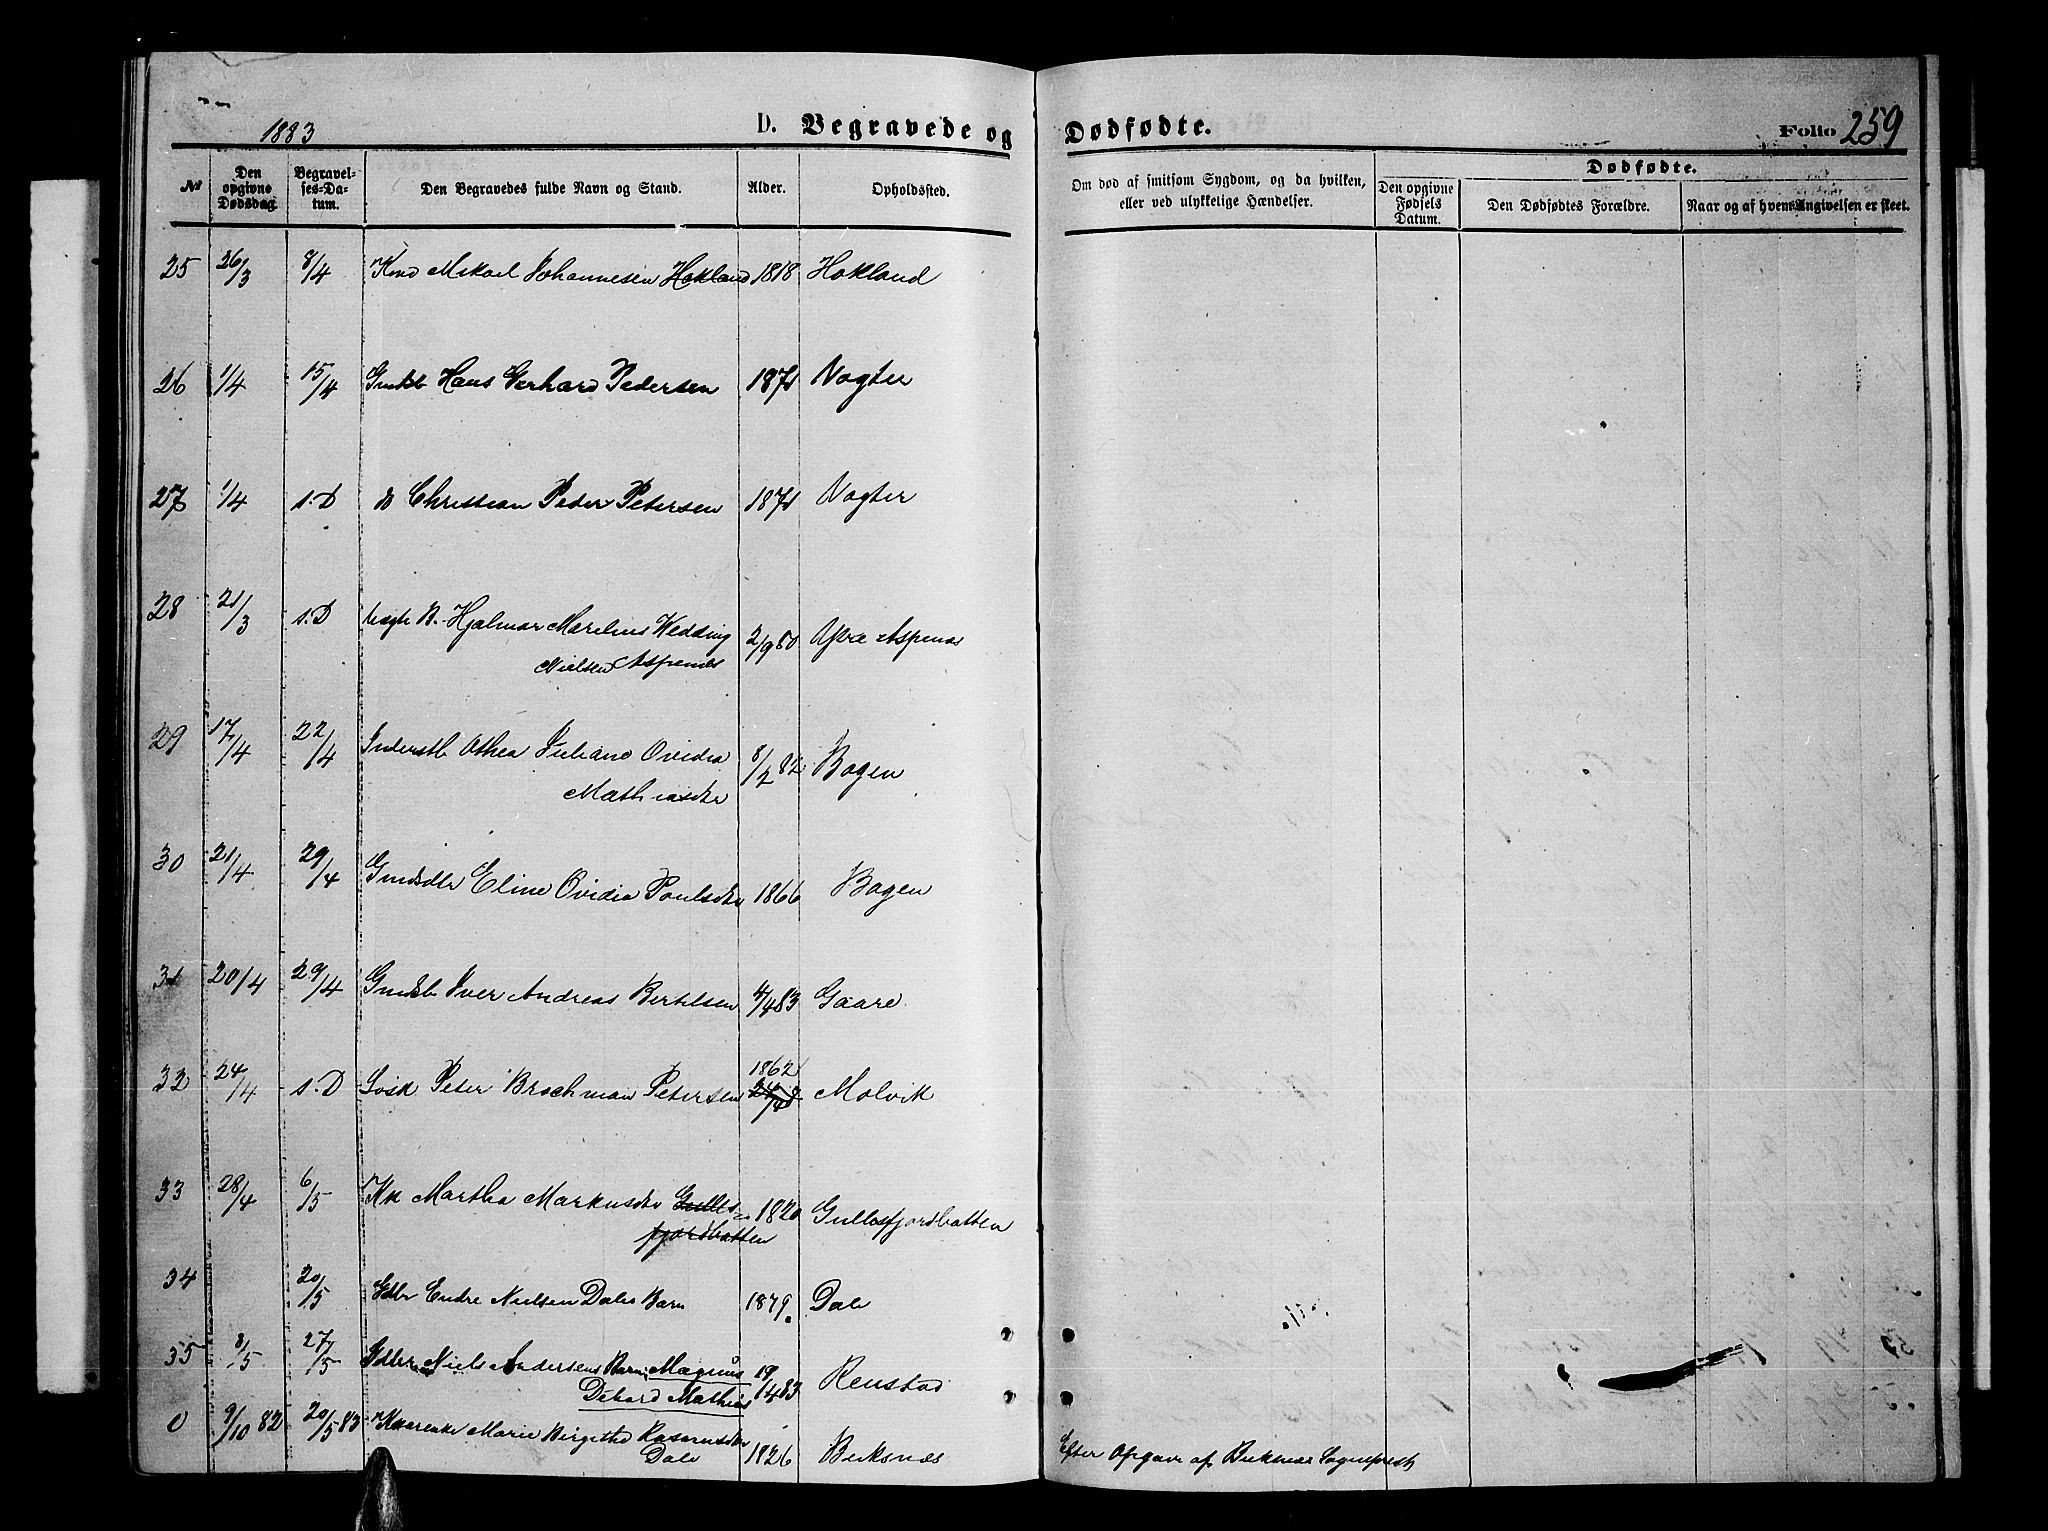 1883
D. Begravede og Dødfødte.
Folio 259
№
Den opgivne Dødsdag.
Begravelses-Datum.
Den Begravedes fulde Navn og Stand.
Alder.
Opholdssted.
Om død af smitsom Sygdom, og da hvilken, eller ved ulykkelige Hændelser.
Dødfødte.
Den opgivne Fødsels Datum.
Den Dødfødtes Forældre.
Naar og af hvem Angivelsen er skeet.
25 26/3 8/4 Johannesen Hokland 1818 Hokland
26 1/4 15/4 Hans Gerhard Pedersen 1871 Vogter
27 1/4 s.D do Christian Peder Petersen 1871 Vogter
28 21/3 s.D B. Hjalmar Marelius Wedding 2/9 80 Aspenæs
Nielsen Aspenæs
29 17/4 22/4 Inderstb Othea Juliane Ovidia 8/2 82 Bogen
Mathiasdtr
30 21/4 29/4 Gmdsdtr Eline Ovidia Poulsdtr 1866 Bogen
31 20/4 29/4 Gmdsb Iver Andreas Bertelsen 4/4 83 Gaare
1862
32 24/4 s.D Peter Brochman Petersen Molvik
33 28/4 6/5 Martha Markusdtr Gulles- 1820 Gullesfjordbotten
fjordbotten
34 20/5 Gdbr Endre Nielsen Dales Barn 1879. Dale
35 8/5 27/5 Gdbr Niels Andersens Barn Magnus 19/4 83 Renstad
Dehard Mathias
0 9/10 82 20/5 83 Marie Birgithe Rasmusdtr
Dale 1826 Buksnæs Efter Opgave af Buksnæs Sognepræst